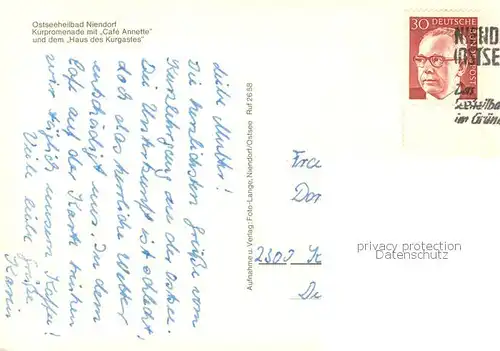 Ostseeheilbad Niendorf
Kurpromenade mit „Café Annette"
und dem „Haus des Kurgastes"
Liebe Mutter!
Die herzlichsten Grüße vom
Kurzlehrgang an der Ostsee.
Die Unterkunft ist schlecht,
doch das herrliche Wetter
entschädigt uns. In dem
Cafe auf der Karte trinken
wir täglich unsern Kaffee!
Viele liebe Grüße
Karin
Aufnahme u. Verlag: Foto-Lange, Niendorf/Ostsee Ruf 2658
30 DEUTSCHE BUNDESPOST
NIEND
OSTSE
Das
im Grüne
Fra
Dor
2300 K
privacy protection
Datenschutz